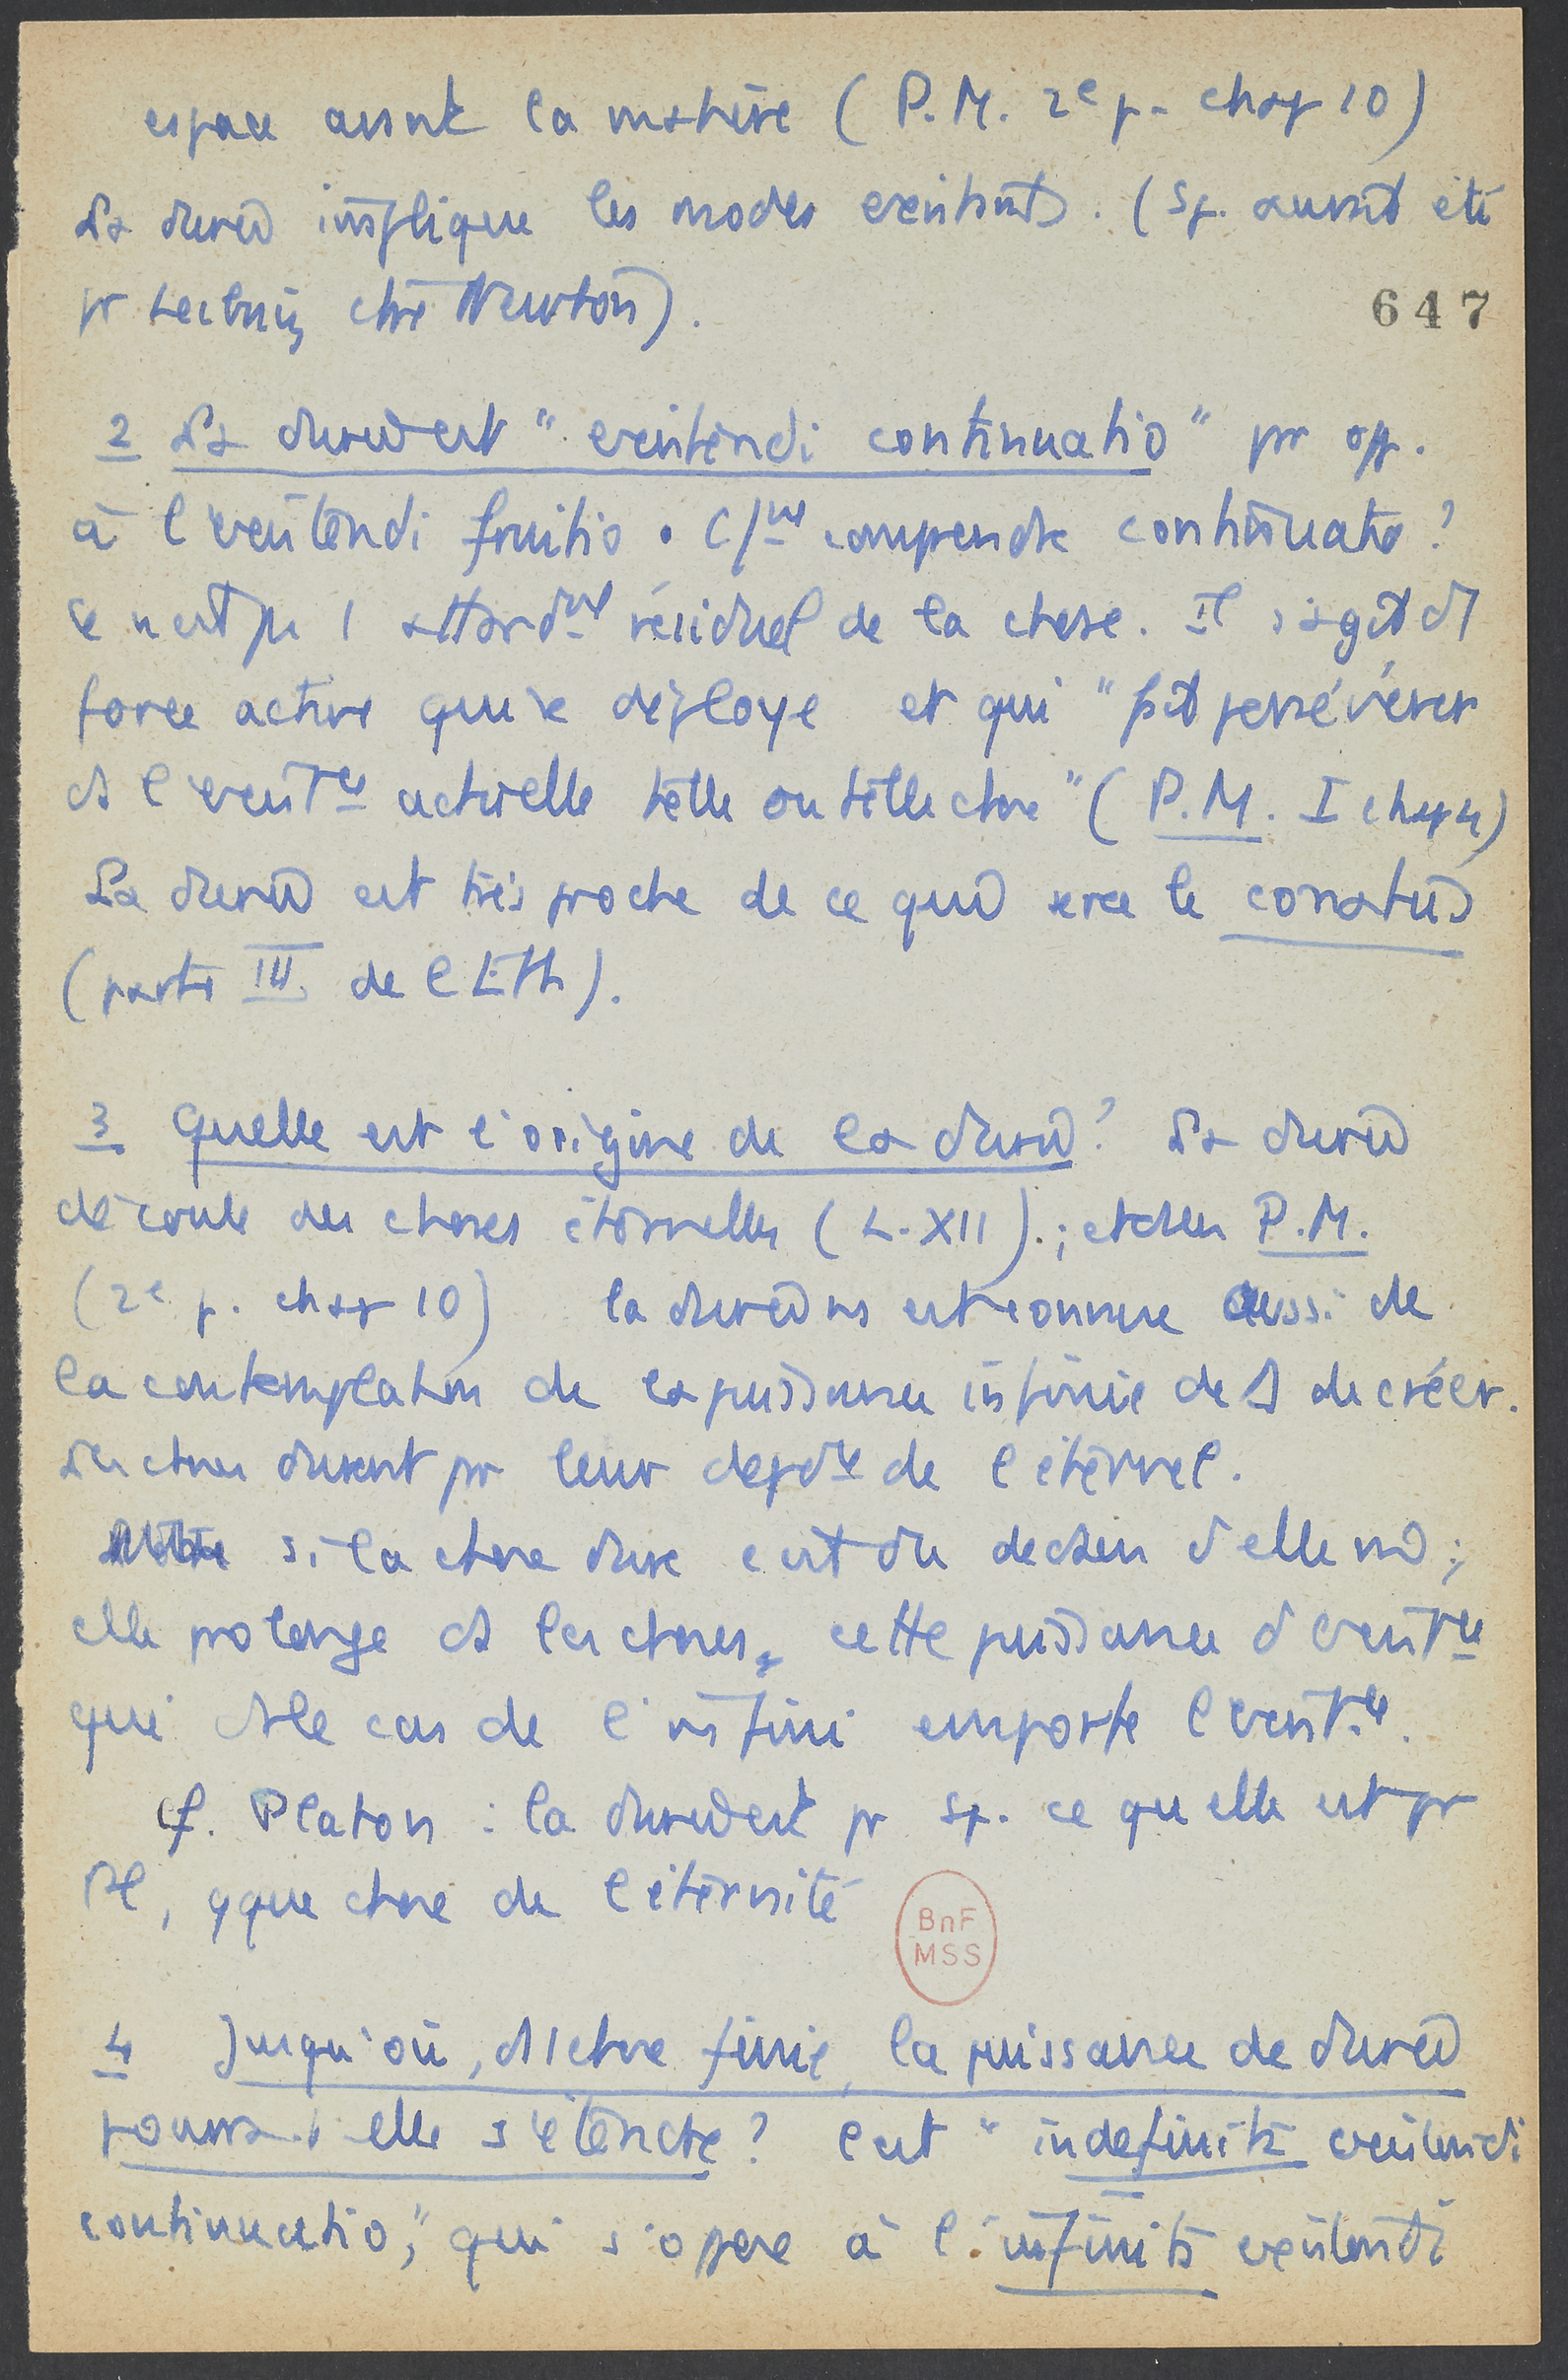 espace avant la matière (P.M. 2e p. chap 10)
La durée implique les modes existants. (Sp. aurait été
pr Leibniz ctre Newton).
647
2 La durée est "existendi continuatio" pr opp.
à l'existendi fruitio. C/mt comprendre continuatio?
Ce n'est pas 1 attardmt résiduel de la chose. Il s'agit d'1
force active qui se déploye et qui "fait persévérer
ds l'existce actuelle telle ou telle chose" (P.M. I chap 4)
La durée est très proche de ce que sera le conatus
(partie III de l'Eth).
3 Quelle est l'origine de la durée? La durée
découle des choses éternelles (L. XII).; et ds les P.M.
(2e p. chap 10) la durée ns est connue aussi de
la contemplation de la puissance infinie de D de créer.
Les choses durent pr leur depdce de l'éternel.
si la chose dure c'est du dedans d'elle m;
elle prolonge ds les choses, cette puissance d'existce
qui ds le cas de l'infini emporte l'existce.
Cf. Platon : la durée est pr Sp. ce qu'elle est pr
Pl, qque chose de l'éternité
BnF
MSS
4 Jusqu'où, ds 1 chose finie, la puissance de durée
pourra-t-elle s'étendre? C'est "indefinita existendi
continuatio," qui s'oppose à l'infinita existendi